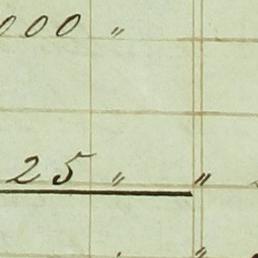 000 "
25 " "